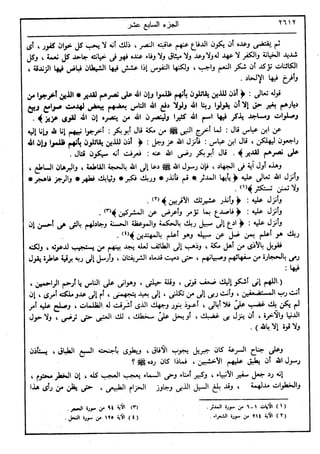 ٢٦١٢ الجزء السابع عشر
ثم يقتضى وعده أن يكون الدفاع عنهم عاقبته النصر ، ذلك أنه لا يحب كل خوان كفور ، أى
شديد الخيانة والكفر لا عهد له ولا وعد ولا ميثاق ولا وفاء عنده فهو فى خيانته جاحد كل نعمة ، وكل
الكائنات تؤكد أن شكر النعم واجب ، ولكنها النفوس إذا عشش فيها الشيطان فباض فيها الزندقة ،
وأفرخ فيها الإلحاد .
قوله تعالى : ﴿ أذن للذين يقاتلون بأنهم ظلموا وإن الله على نصرهم لقدير * الذين أخرجوا من
ديارهم بغير حق إلا أن يقولوا ربنا الله ولولا دفع الله الناس بعضهم ببعض لهدمت صوامع وبيع
وصلوات ومساجد يذكر فيها اسم الله كثيرا ولينصرن الله من ينصره إن الله لقوى عزيز ﴾ .
عن ابن عباس قال : لما أخرج النبى ﷺ من مكة قال أبو بكر : أخرجوا نبيهم إنا لله وإنا إليه
راجعون ليهلكن ، قال ابن عباس : فأنزل الله عز وجل : ﴿ أذن للذين يقاتلون بأنهم ظلموا وإن الله
على نصرهم لقدير ﴾ . قال أبو بكر رضى الله عنه : فعرفت أنه سيكون قتال .
وهذه أول آية فى الجهاد ، فإن رسول الله ﷺ دعا إلى الله بالحجة القاطعة ، والبرهان الساطع ،
وأنزل الله تعالى عليه ﴿ يأيها المدثر * قم فأنذر * وربك فكبر * وثيابك فطهر * والرجز فاهجر *
ولا تمنن تستكثر ﴾(١) .
وأنزل عليه : ﴿ وأنذر عشيرتك الأقربين ﴾(٢) .
وأنزل عليه : ﴿ فاصدع بما تؤمر وأعرض عن المشركين ﴾(٣) .
وأنزل عليه : ﴿ ادع إلى سبيل ربك بالحكمة والموعظة الحسنة وجادلهم بالتى هى أحسن إن
ربك هو أعلم بمن ضل عن سبيله وهو أعلم بالمهتدين ﴾(٤) .
فقوبل بالأذى من أهل مكة ، وذهب إلى الطائف لعله يجد بينهم من يستجيب لدعوته ، ولكنه
رمى بالحجارة من سفهائهم وصبيانهم ، حتى دميت قدماه الشريفتان ، وأرسل إلى ربه برقية عاطرة يقول
فيها :
( اللهم إنى أشكو إليك ضعف قوتى ، وقلة حيلتى ، وهوانى على الناس يا أرحم الراحمين ،
أنت رب المستضعفين ، وأنت ربى إلى من تكلنى ، إلى بعيد يتجهمنى ، أم إلى عدو ملكته أمرى ، إن
لم يكن بك غضب علىّ فلا أبالى ، أعوذ بنور وجهك الذى أشرقت له الظلمات ، وصلح عليه أمر
الدنيا والآخرة ، أن ينزل بى غضبك ، أو يحل علىّ سخطك ، لك العتبى حتى ترضى ، ولا حول
ولا قوة إلا بالله ) .
وعلى جناح السرعة كان جبريل يجوب الآفاق ، ويطوى بأجنحته السبع الطباق ، يستأذن
رسول الله أن يطبق عليهم الأخشبين ، فماذا كان رده ﷺ ؟
إنه رد جعل سفير الأنبياء ، وكبير أمناء وحى السماء يعجب العجب كله ، إن الخطر محتوم ،
والخطوات مدلهمة ، وقد بلغ السيل الذى وجاوز الحزام الطبيعى ، حتى يظن من رأى هذا
(١) الآيات ١ - ٦ من سورة المدثر .
(٢) الآية ٢١٤ من سورة الشعراء .
(٣) الآية ٩٤ من سورة الحجر .
(٤) الآية ١٢٥ من سورة النحل .